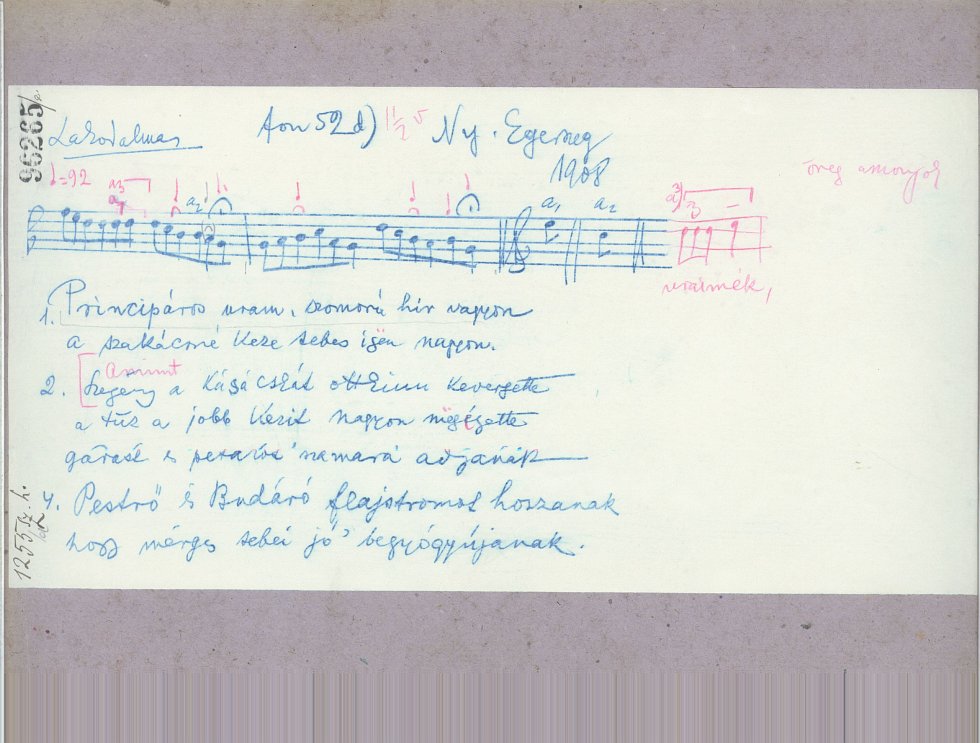 96265
Lakodalmas
Ny. Egerszeg
1908
öreg asszonyok
♩=92
a3
a2
a1
a2
a3)
uraimék,
1. Principáros uram, szomorú hir vagyon
a szakácsné keze sebes igën nagyon.
Amint
2. Szegény a kásácskát ottkinn kevergette
a tűz a jobb kezit nagyon mëgégette
garast s petakot namará adjanak
4. Pestrő és Budáró flajstromot hozzanak
hogy mérges sebei jó begyógyújanak.